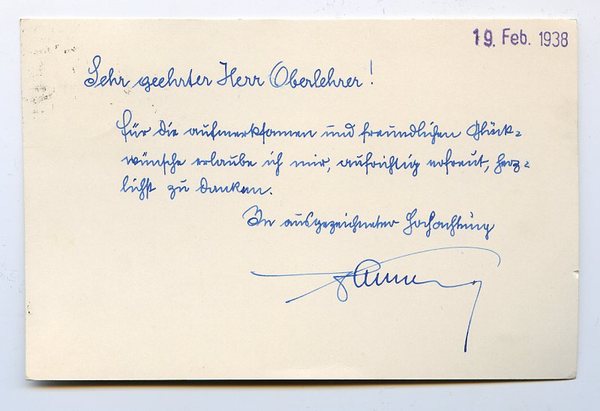 19. Feb. 1938
Sehr geehrter Herr Oberlehrer!
Für die aufmerksamen und freundlichen Glück-
wünsche erlaube ich mir, aufrichtig erfreut, herz-
lichst zu danken.
In ausgezeichneter Hochachtung